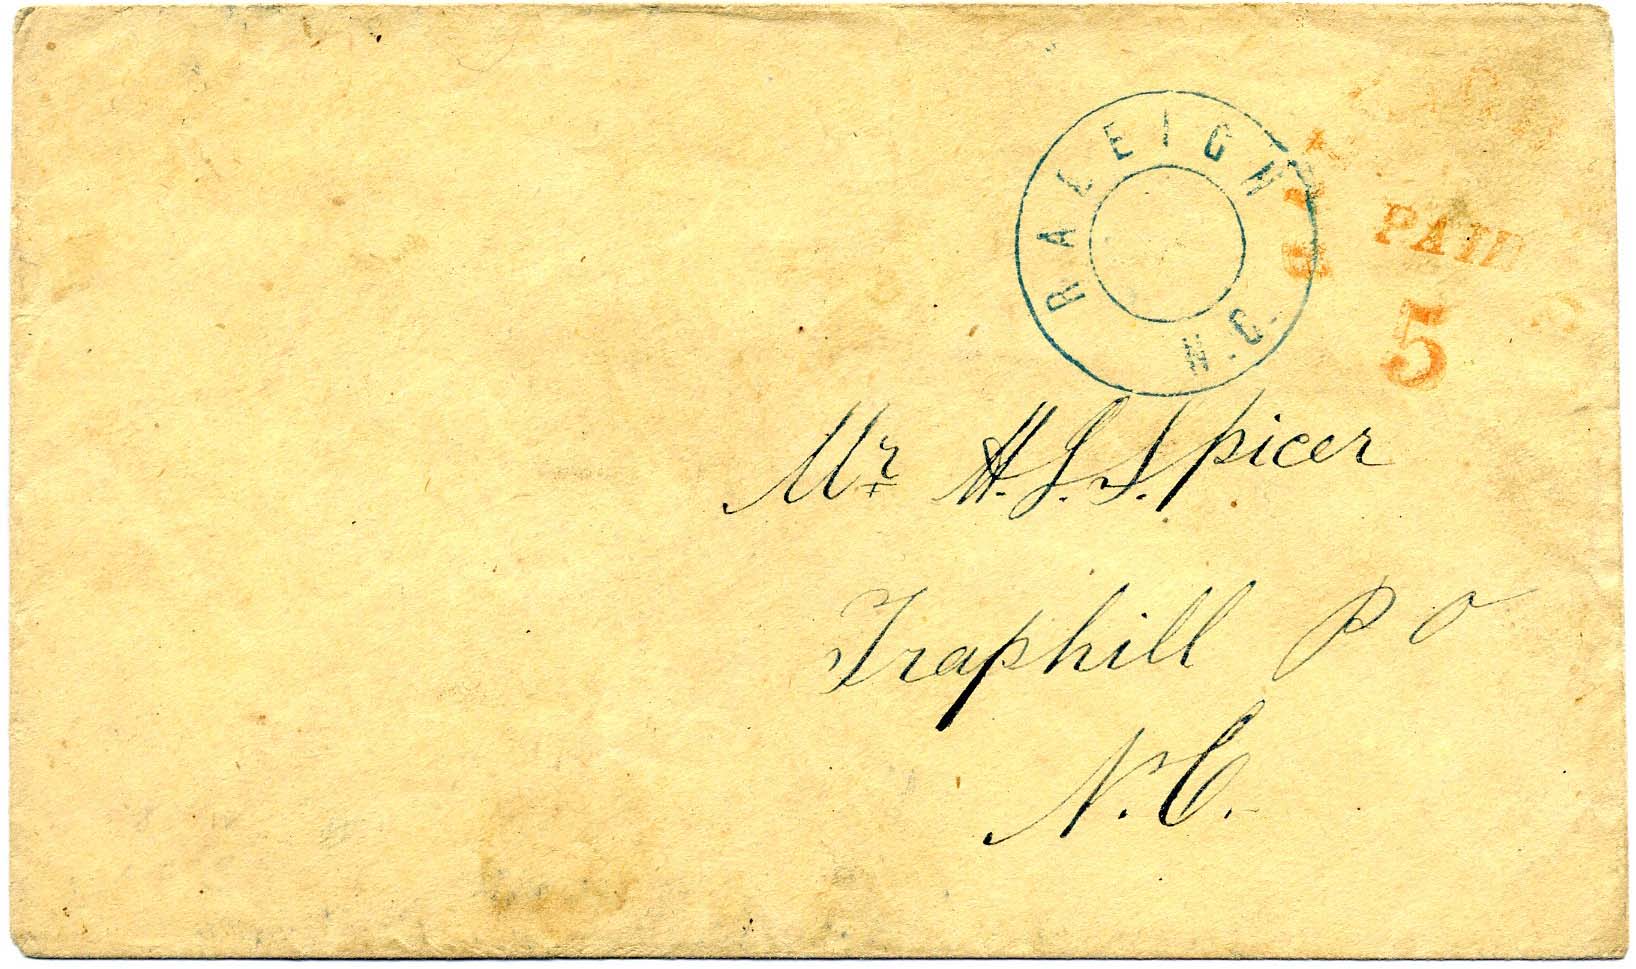 RALEIGH
N.C.
PAID
5
Mr H. J. Spicer
Traphill P O
N. C.